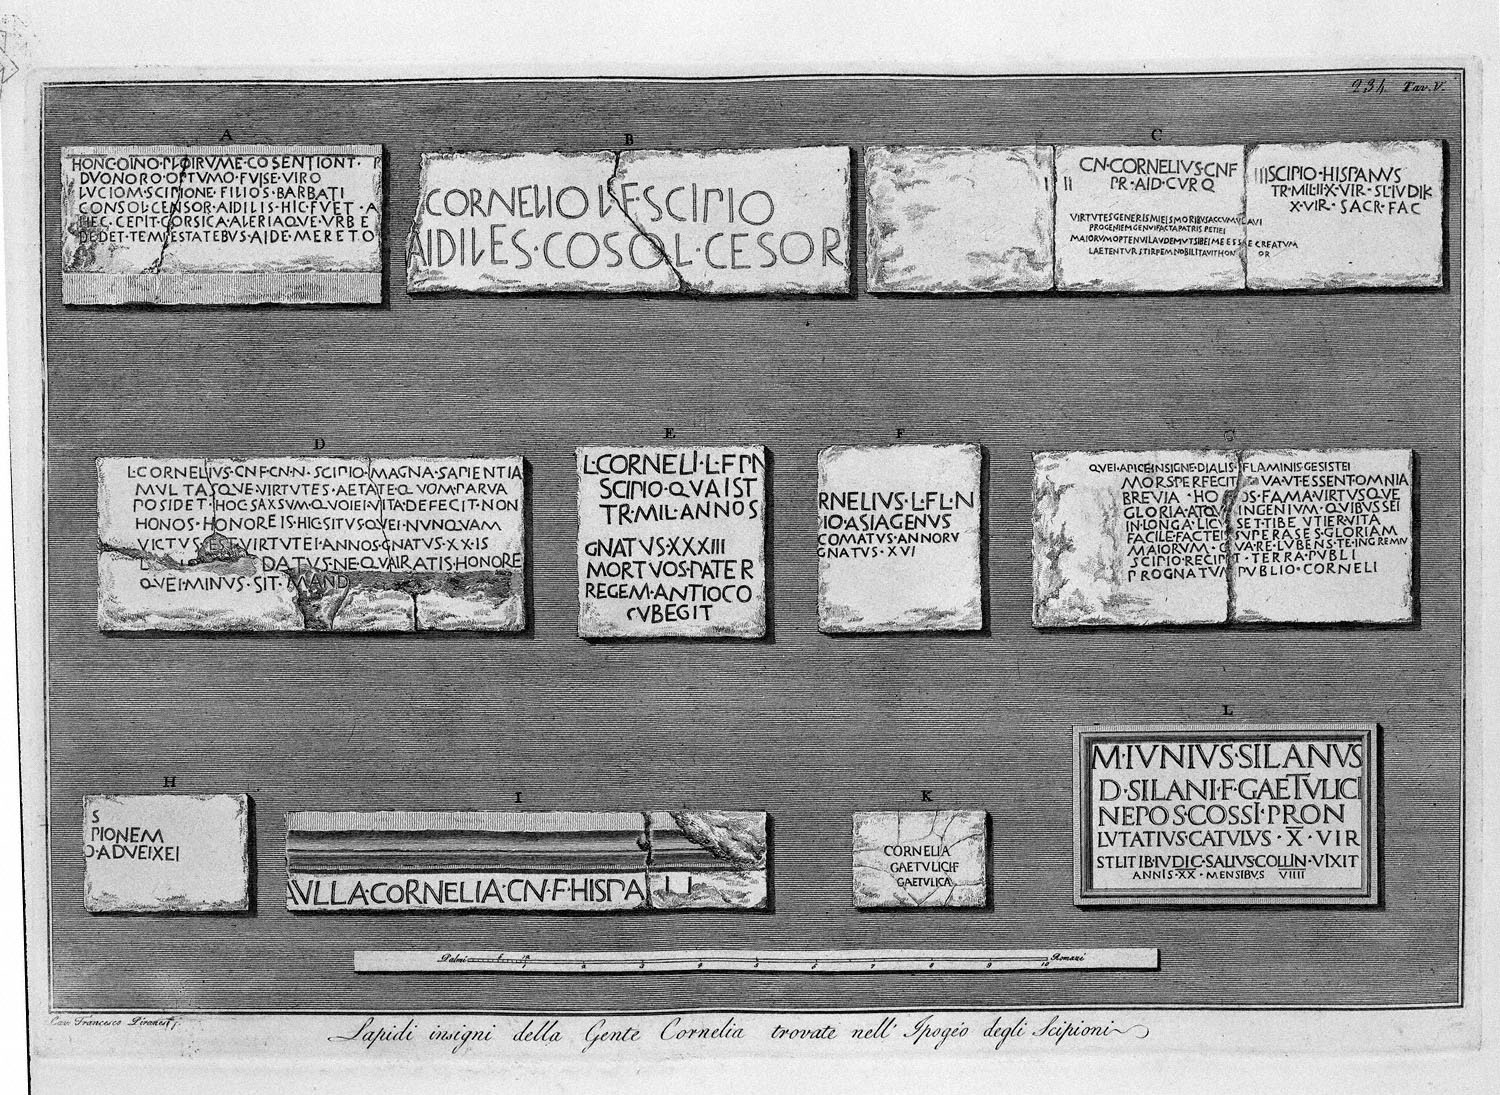 234 Tav. V.
A
HONC·OINO·PLOIRVME·COSENTIONT· R
DVONORO·OPTVMO·FVISE·VIRO
LVCIOM·SCIPIONE·FILIOS·BARBATI
CONSOL·CENSOR·AIDILIS·HIC·FVET·A
HEC·CEPIT·CORSICA·ALERIAQVE·VRBE
DEDET·TEMPESTATEBVS·AIDE·MERETO
B
CORNELIO L·F·SCIPIO
AIDILES·COSOL·CESOR
C
CN·CORNELIVS·CN·F
PR·AID·CVR Q
SCIPIO·HISPANVS
TR·MIL·II·X·VIR·SL·IVDIK
X·VIR· SACR·FAC
VIRTVTES GENERIS MIEIS MORIBVS ACCVMVLAVI
PROGENIEM GENVI FACTA PATRIS PETIEI
MAIORVM OPTENVI LAVDEM VT SIBEI ME ESSE CREATVM
LAETENTVR STIRPEM NOBILITAVIT HONOR
D
L·CORNELIVS·CN·F·CN·N·SCIPIO·MAGNA·SAPIENTIA
MVLTASQVE·VIRTVTES·AETATE·QVOM·PARVA
POSIDET·HOC·SAXSVM·QVOIEI·VITA·DEFECIT·NON
HONOS·HONORE IS·HIC·SITVS·QVEI·NVNQVAM
VICTVS·EST·VIRTVTEI·ANNOS·GNATVS·XX·IS
L DATVS·NE·QVAIRATIS·HONORE
QVEI·MINVS·SIT·MAND
E
L·CORNELI·L·F·P·N
SCIPIO·QVAIST
TR·MIL·ANNOS
GNATVS·XXXIII
MORTVOS·PATER
REGEM·ANTIOCO
SVBEGIT
F
RNELIVS·L·F·L·N
IO·ASIAGENVS
COMATVS·ANNORV
GNATVS·XVI
G
QVEI·APICE·INSIGNE·DIALIS·FLAMINIS·GESISTEI
MORS·PERFECIT VA·VT·ESSENT·OMNIA
BREVIA·HO OS·FAMA·VIRTVSQVE
GLORIA·ATQV INGENIVM·QVIBVS SEI
IN·LONGA·LICV SET·TIBE VTIER VITA
FACILE·FACTEI SVPERASES·GLORIAM
MAIORVM·QVA·RE·LVBENS·TE·IN GREMIV
SCIPIO·RECIPIT·TERRA·PVBLI
PROGNATVM PVBLIO·CORNELI
H
S
PIONEM
O·ADVEIXEI
I
AVLLA·CORNELIA·CN·F·HISPALLI
K
CORNELIA
GAETVLICI·F
GAETVLICA
L
M·IVNIVS·SILANVS
D·SILANI·F·GAETVLICI
NEPOS·COSSI·PRON
LVTATIVS·CATVLVS·X·VIR
STLITIB·IVDIC·SALIVS·COLLIN·VIXIT
ANNIS·XX·MENSIBVS VIIII
Palmi 1 2 3 4 5 6 7 8 9 10 Romani
Cav. Francesco Piranesi f.
Lapidi insigni della Gente Cornelia trovate nell' Ipogéo degli Scipioni